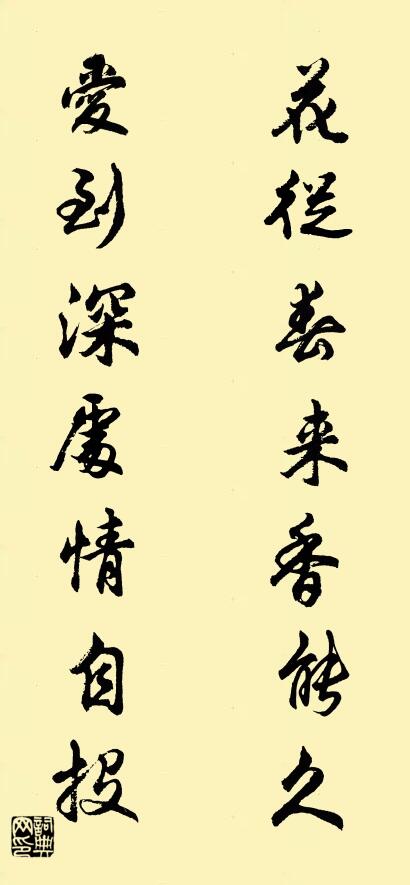 花從春来香能久
愛到深處情自投
詞典網印